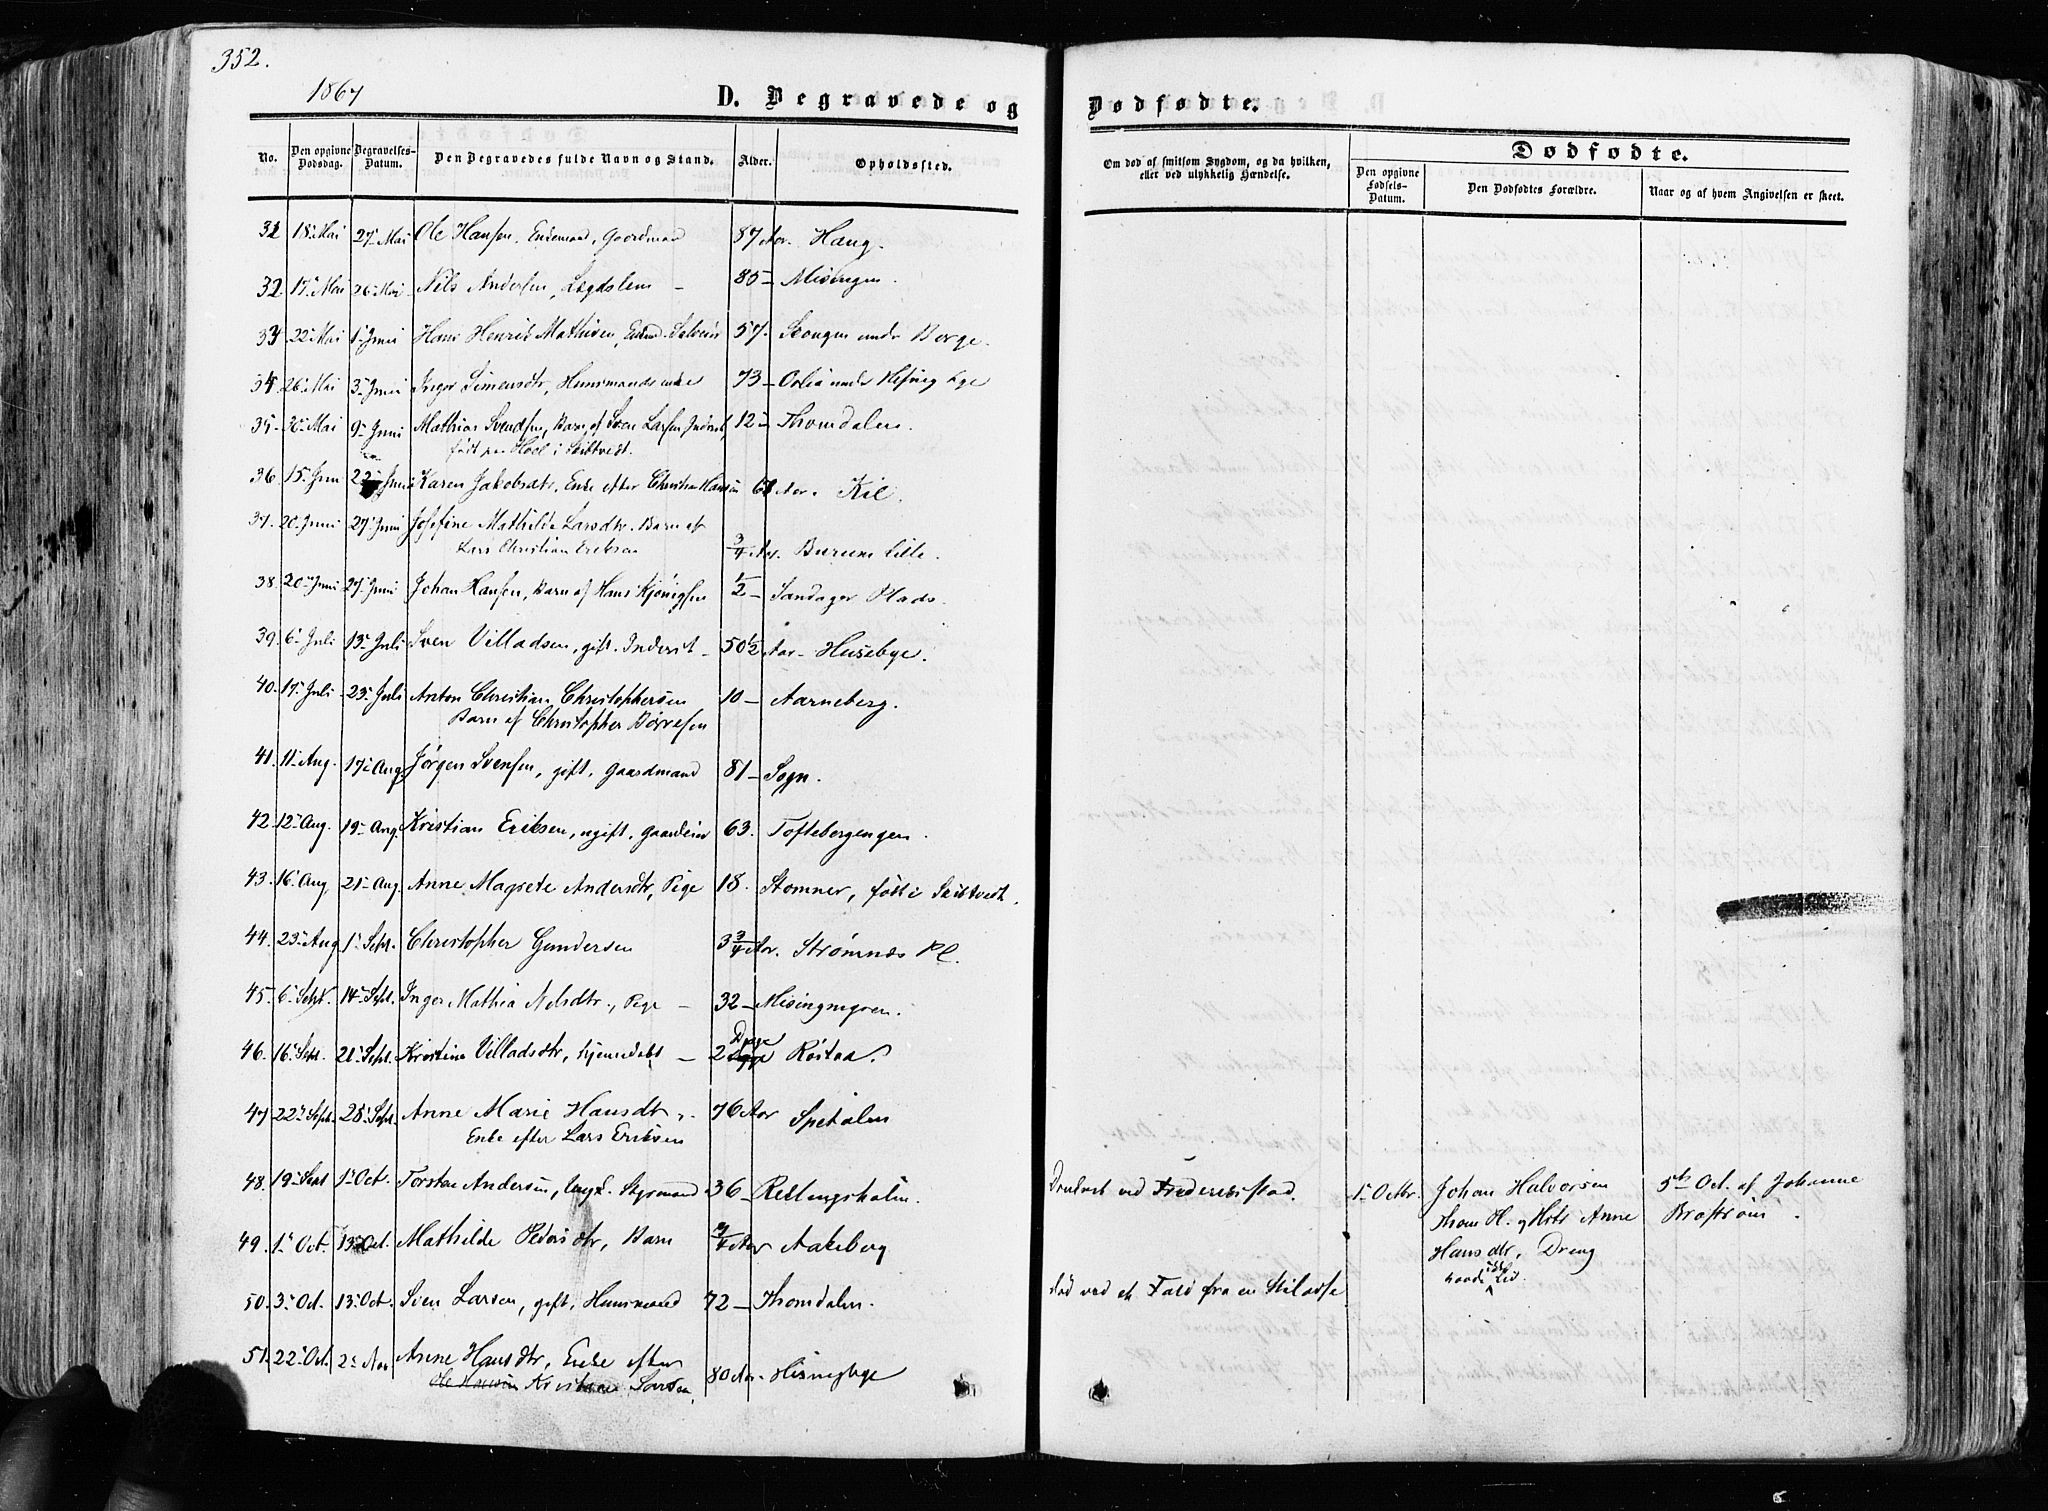 352.
1867
D. Begravede og Dødfødte.
No. Den opgivne Dødsdag. Begravelses-Datum. Den Begravedes fulde Navn og Stand. Alder. Opholdssted.
Om død af smitsom Sygdom, og da hvilken, eller ved ulykkelig Hændelse.
Dødfødte.
Den opgivne Fødsels-Datum. Den Dødfødtes Forældre. Naar og af hvem Angivelsen er skeet.
18 Mai 27 Mai Ole Hansen, Enkemand, Gaardmand 87 Aar. Haug.
32 17 Mai 26 Mai Nils Andersen, Lægdslem – 85 – Misingen.
22 Mai 1 Juni Hans Henrik Mathisen, 57. Skougen under Borge.
26 Mai 3 Juni Inger Simensdtr, Huusmandsenke 73 – under
35. Mai 9 Juni Mathias Svendsen, Barn af Sven Larsen Inderst, 12 – Thomdalen.
født paa Hoel i Skibtvedt.
36. 15 Juni 22 Juni Karen Jakobsdtr, Enke efter Christian Hansen Aar. Kil.
37. 20 Juni 27 Juni Josefine Mathilde Larsdtr. Barn af
Lars Christian Eriksen 3/4 Aar. Burum lille.
38. 20 Juni 27 Juni Johan Hansen, Barn af Hans Kjönigsen 1/2 – Sandager Plads.
39. 6 Juli 13 Juli Sven Villadsen, gift. Inderst – 50 1/2 Aar – Husebye.
40. 17 Juli 23 Juli Anton Christian Christophersen 10 – Aarneberg.
Barn af Christopher Börresen
41. 11 Aug. 17 Aug Jörgen Svensen, gift, Gaardmand 81 – Sogn.
42. 12 Aug. 19 Aug. Kristian Eriksen, ugift, 63. Toftebergengen.
43. 16 Aug 21 Aug. Anne Magrete Andersdtr, Pige 18. Stomner, født i Skibtvedt.
44. 23 Aug 1 Sept. Christopher Gundersen 3 3/4 Aar. Strømnæs Pl.
45. 6 Sept. 14 Sept. Inger Mathea Nilsdtr., Pige – 32 – Misingmyren.
46. 16 Sept. 21 Sept. Kristine Villadsdtr, hjemmedøbt – 2 Dage Röstad.
47. 22 Sept. 28 Sept. Anne Marie Hansdtr. 76 Aar Spetalen
Enke efter Lars Eriksen
48. 19 Sept 1 Oct. Torstæn Andersen, ugft. Styrmand 36 – Rellingsholm. Druknet ved Frederiksstad. 1 Octbr. Johan Halvorsen 5te Oct. af Johanne
Thom H. og Anne Broström.
49. 1 Oct. 13 Oct. Mathilde Pedersdtr, Barn 3/4 Aar Aakeberg Hansdtr, Dreng
havde ikke Lid.
50. 3 Oct. 13 Oct. Sven Larsen, gift, Huusmand 72 – Thomdalen. død ved et Fald fra en Stiladse
51. 22 Oct. 2 Nov Anne Hansdtr, Enke efter 80 Aar. Hisingbye
Ole Hansen Kristian Larsen.